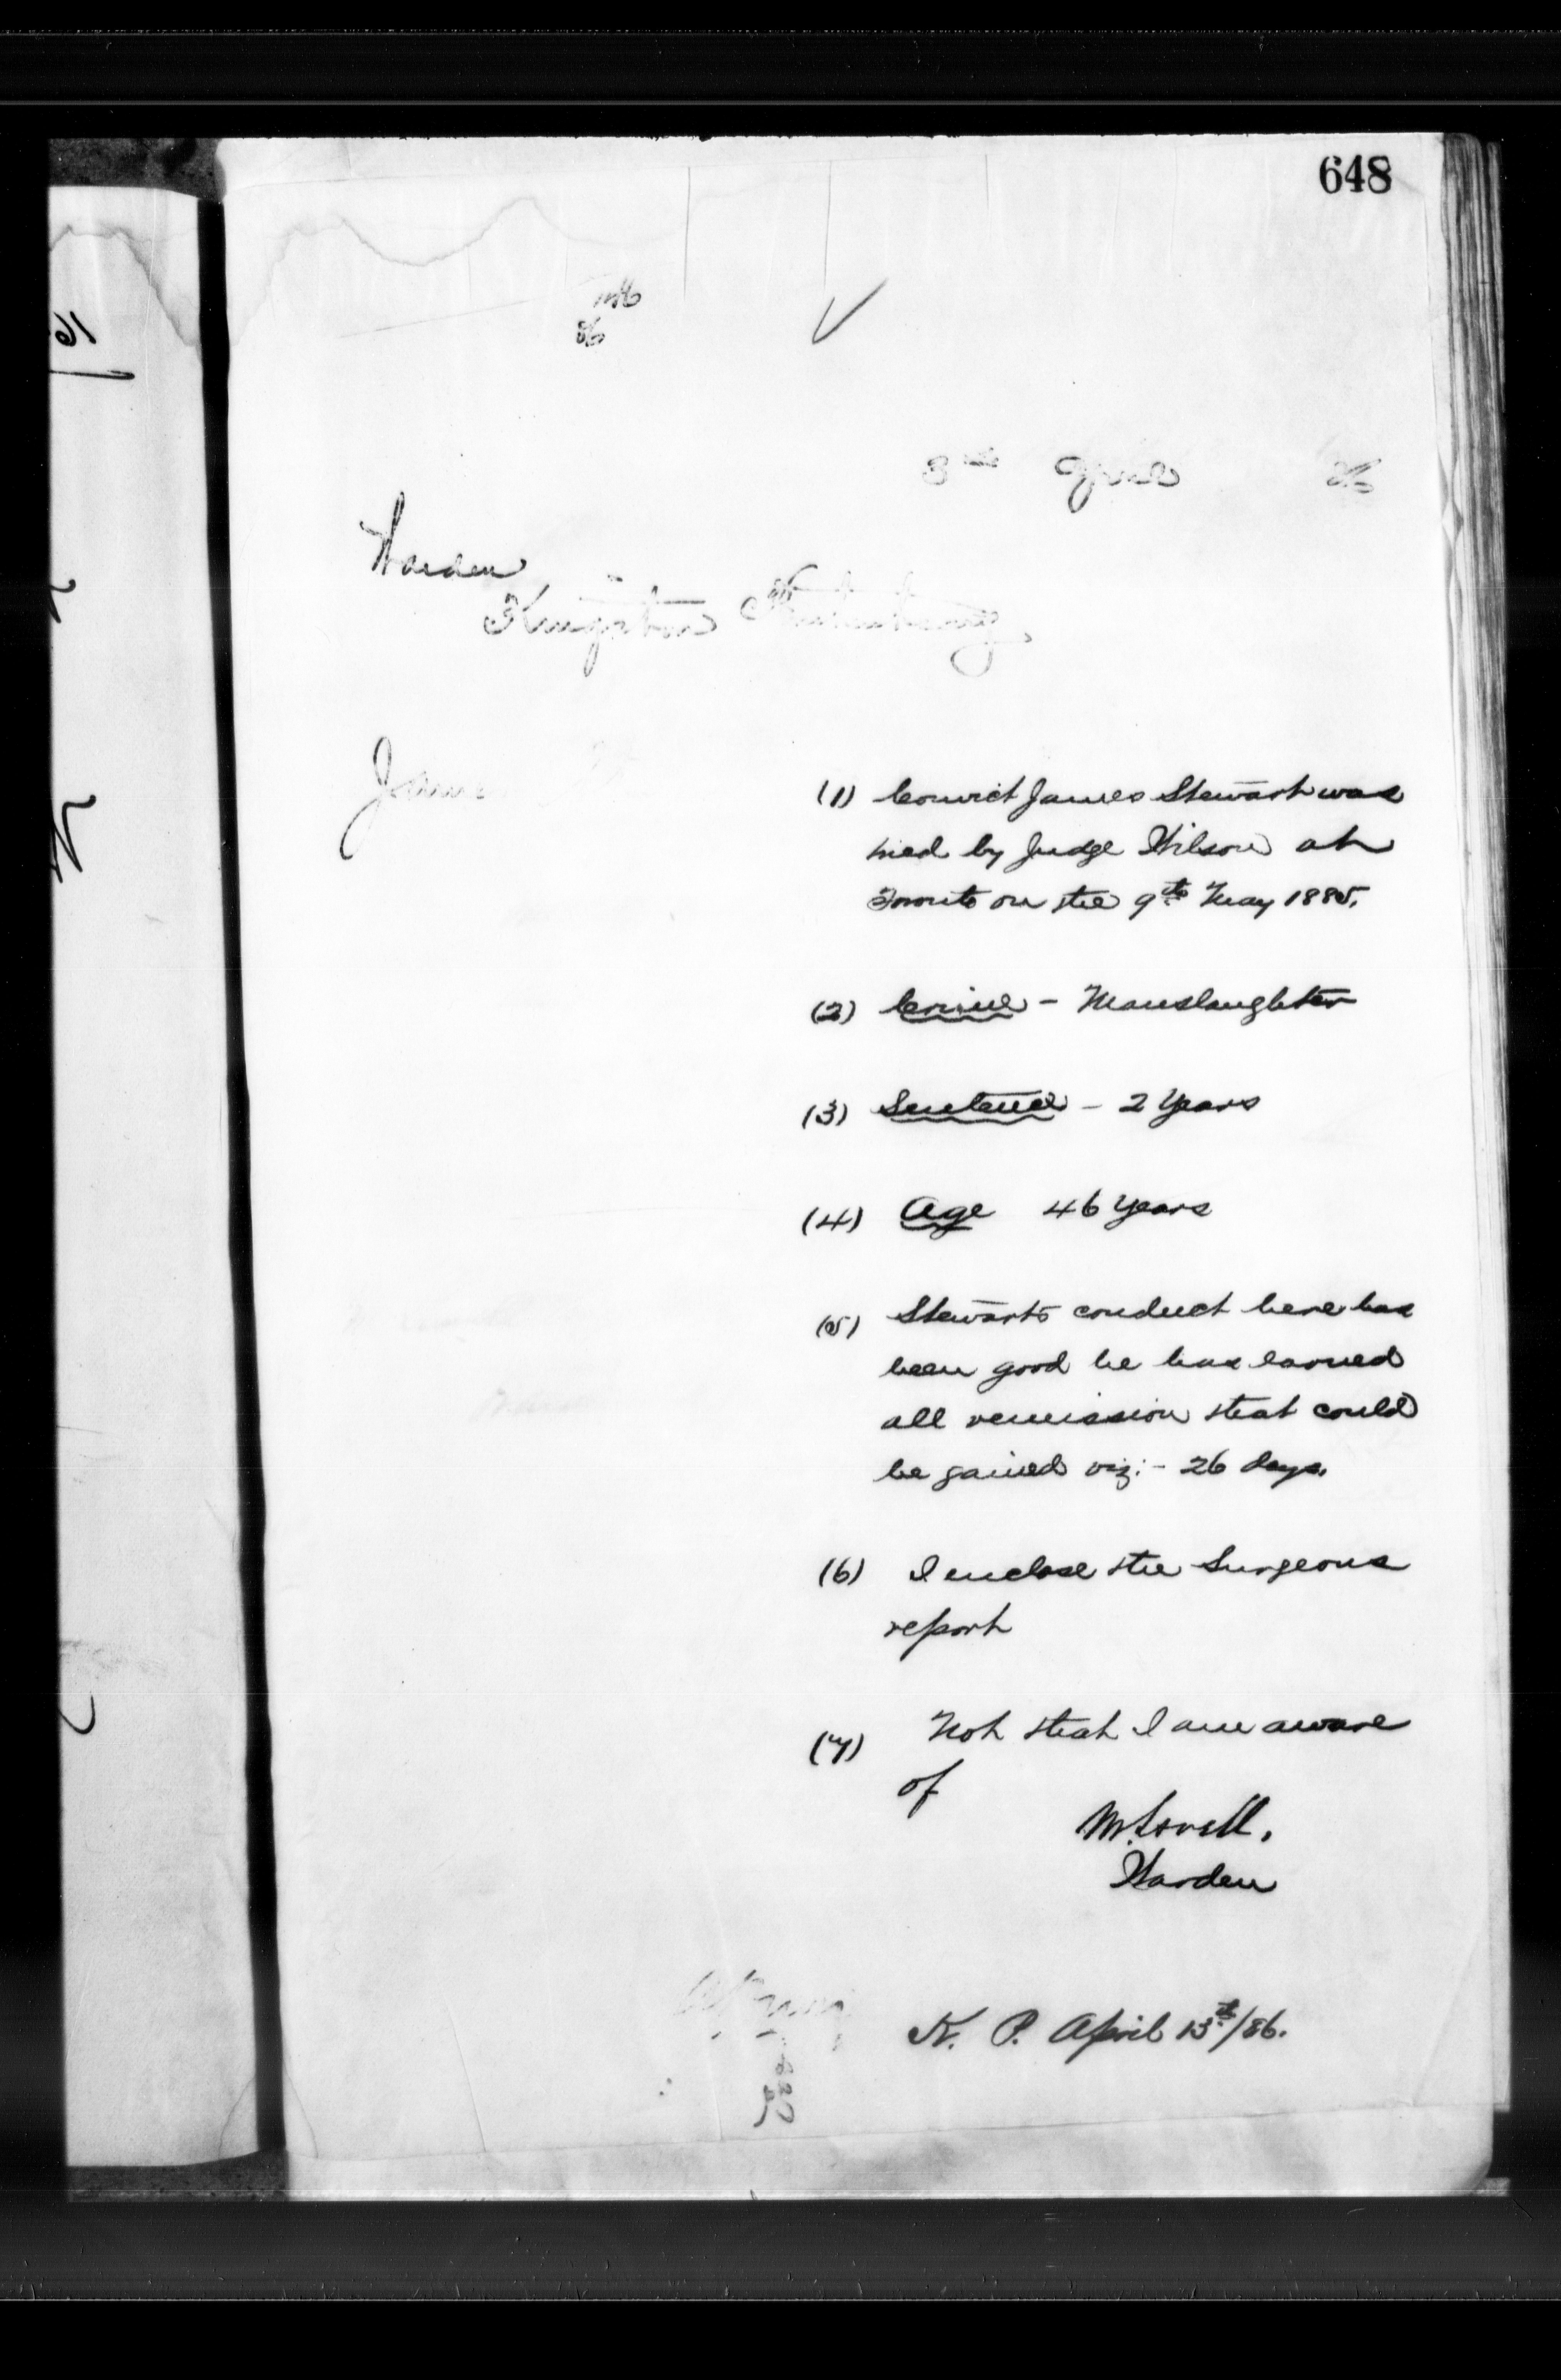 648
86
3rd April 86
Warden
Kingston Penitentiary
James
(1) Convict James Stewart was
tried by Judge Wilson at
Toronto on the 9th May 1885.
(2) Crime - Manslaughter
(3) Sentence - 2 Years
(4) Age 46 Years
(5) Stewarts conduct here has
been good he has earned
all remission that could
be gained viz:- 26 days.
(6) I enclose the Surgeons
report
(7) Not that I am aware
of
M. Lavell.
Warden
K. P. April 13th/86.